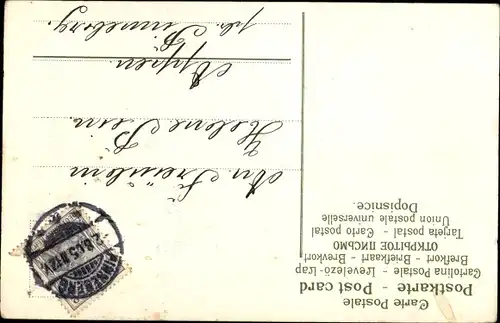 Carte Postale
Postkarte - Post card
Cartolina Postale - Levelező-Lap
Brefkort - Briefkaart - Brevkort
ОТКРЫТОЕ ПИСЬМО
Tarjeta postal - Carte postal
Union postale universelle
Dopisnice.
An Fräulein
Helene Bein.
Appen.
Pinneberg.